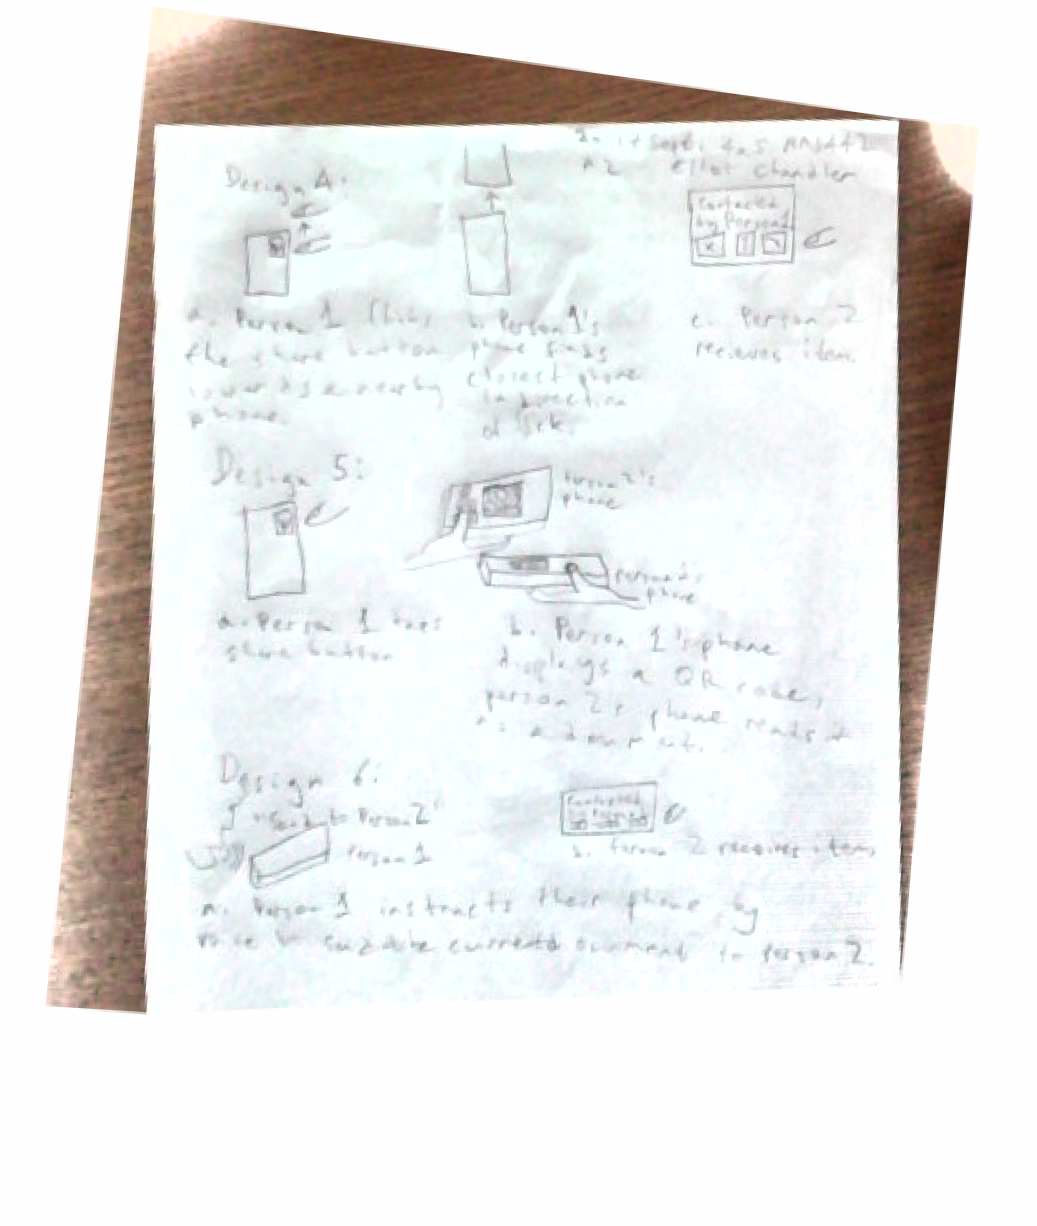 Elliot Chandler
Design 4:
Contacted
by Person 1
a. Person 1 flicks
the share button
towards a nearby
phone.
b. Person 1's
phone finds
closest phone
in direction
of flick.
c. Person 2
recieves item.
Design 5:
Person 2's
phone
phone
a. Person 1 taps
share button
b. Person 1's phone
displays a QR code,
person 2's phone reads it
Design 6:
"Send to Person 2"
Person 1
Contacted
b. Person 2 receives item.
a. Person 1 instructs their phone by
current document to Person 2.